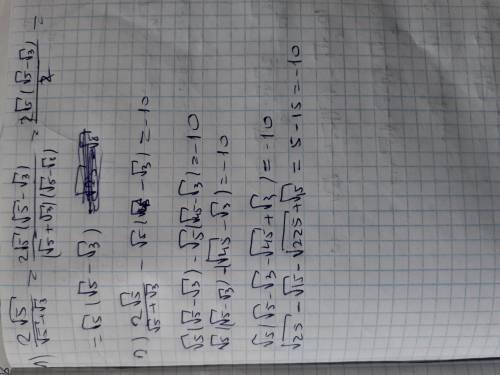 1) 2√5 / √5+√3 = 2√5(√5-√3) / (√5+√3)(√5-√3) = 2√5(√5-√3) / 2 =
= √5(√5-√3)
2) 2√5 / √5+√3 - √5( - √3) = -10
√5(√5-√3) - √5(√45-√3) = -10
√5(√5-√3) - (√45-√3) = -10
√5(√5-√3-√45+√3) = -10
√25-√15-√225+√15 = 5-15 = -10